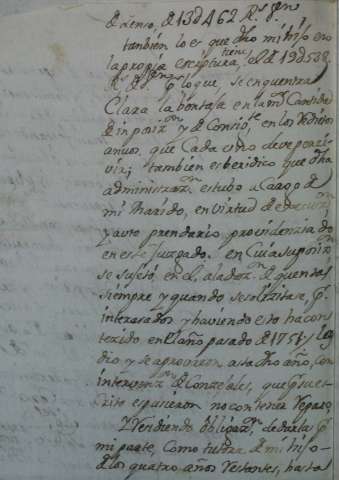 de censo, de 13 d 462 Rs. Dn
también lo es que dho mi hijo en
la propia escriptura, tiene el de 19 d 538
Rs. Dn. Con lo que, se enquentra
Clara la bentaja en la mr. Cantidad
de inposizn. y de Consigte. en los Reditos
anuos, que Cada uno deve perzi-
vir; también es beridico que dha
administrazn. estubo a Cargo de
mi Marido, en virtud de
y auto prendario, providenziado
en este Juzgado, en Cuia suposizn.
se sujetó, en el, a la dazn. de quentas
siempre y quando se solizitase, pr.
interasados y haviendo esto hacon-
tezido en el año pasado de 1751 las
dio y se aprovaron asta dho año, con
intervenzn. de Conzejales, que
espusieron no contener Reparo,
Y Veniendo obligazn. de darla pr.
mi parte, Como tutora de mi hijo
de los quatro años Restantes, hasta